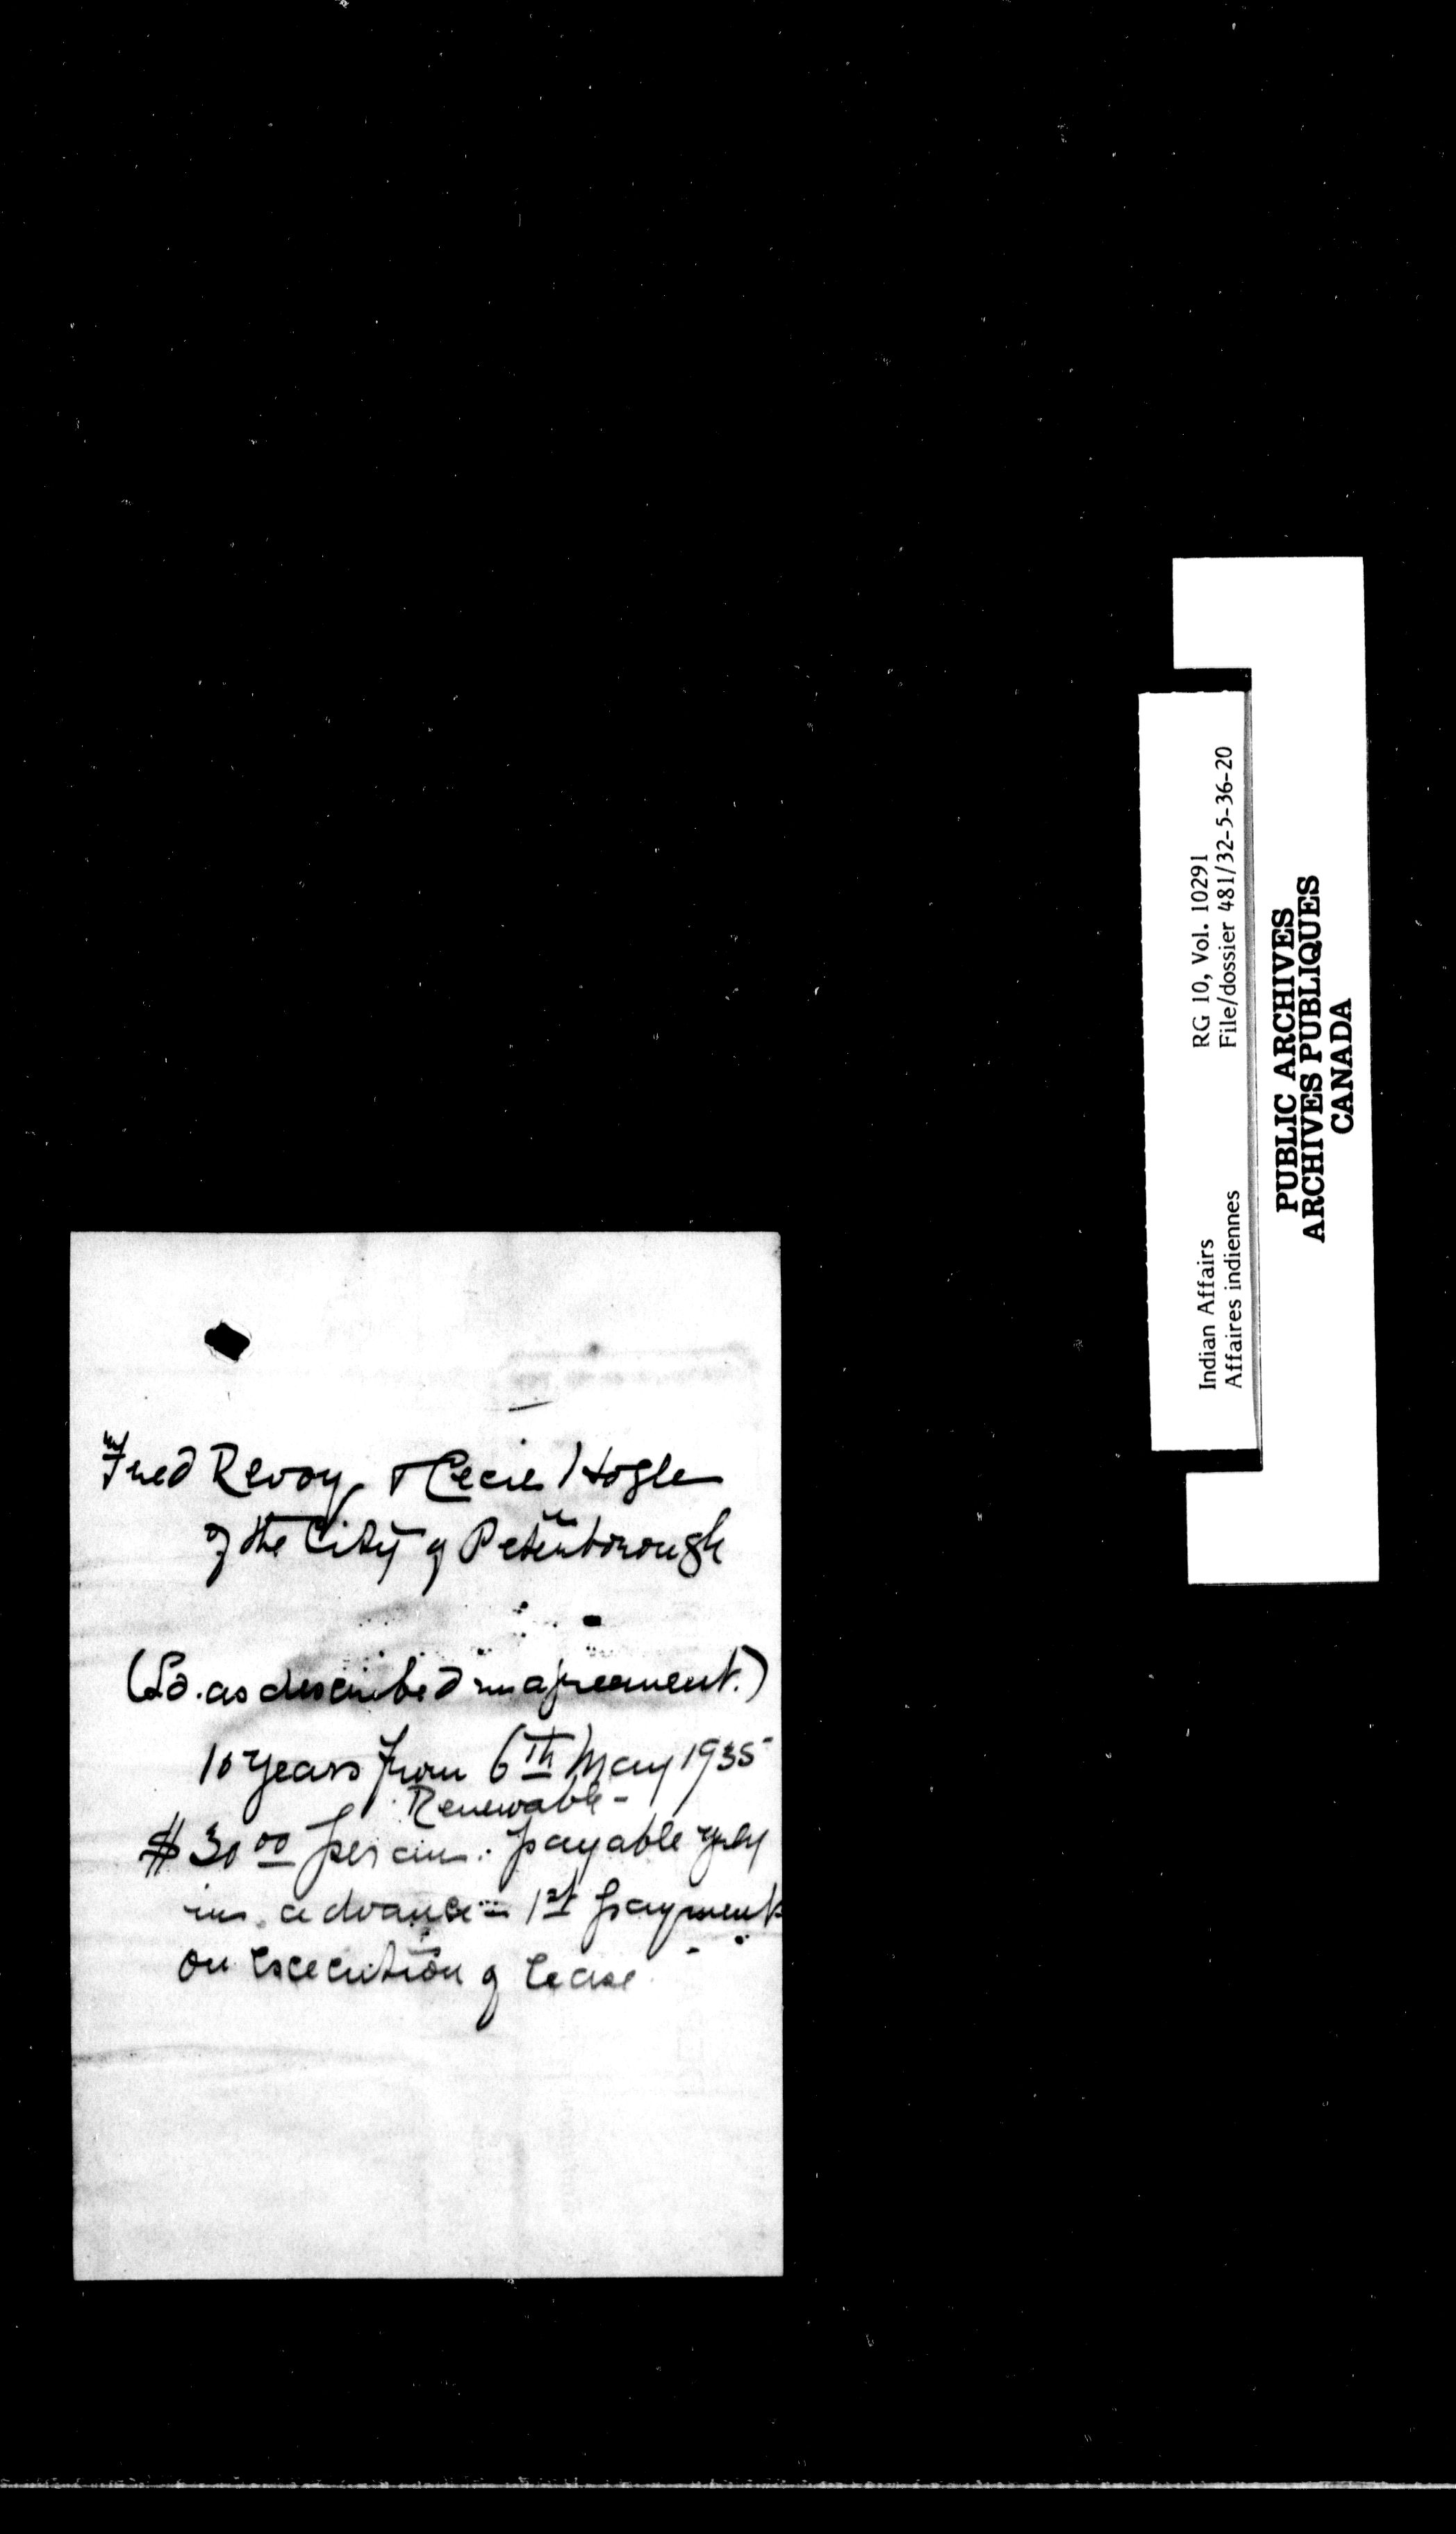 Fred Revoy & Cecil Hogle
of the City of Peterborough
(Ld. as described in agreement.)
10 years from 6th May 1935
Renewable -
$30.00 per an. payable yrly
in advance - 1st payment
on execution of lease
Indian Affairs
Affaires indiennes
RG 10, Vol. 10291
File/dossier 481/32-5-36-20
PUBLIC ARCHIVES
ARCHIVES PUBLIQUES
CANADA